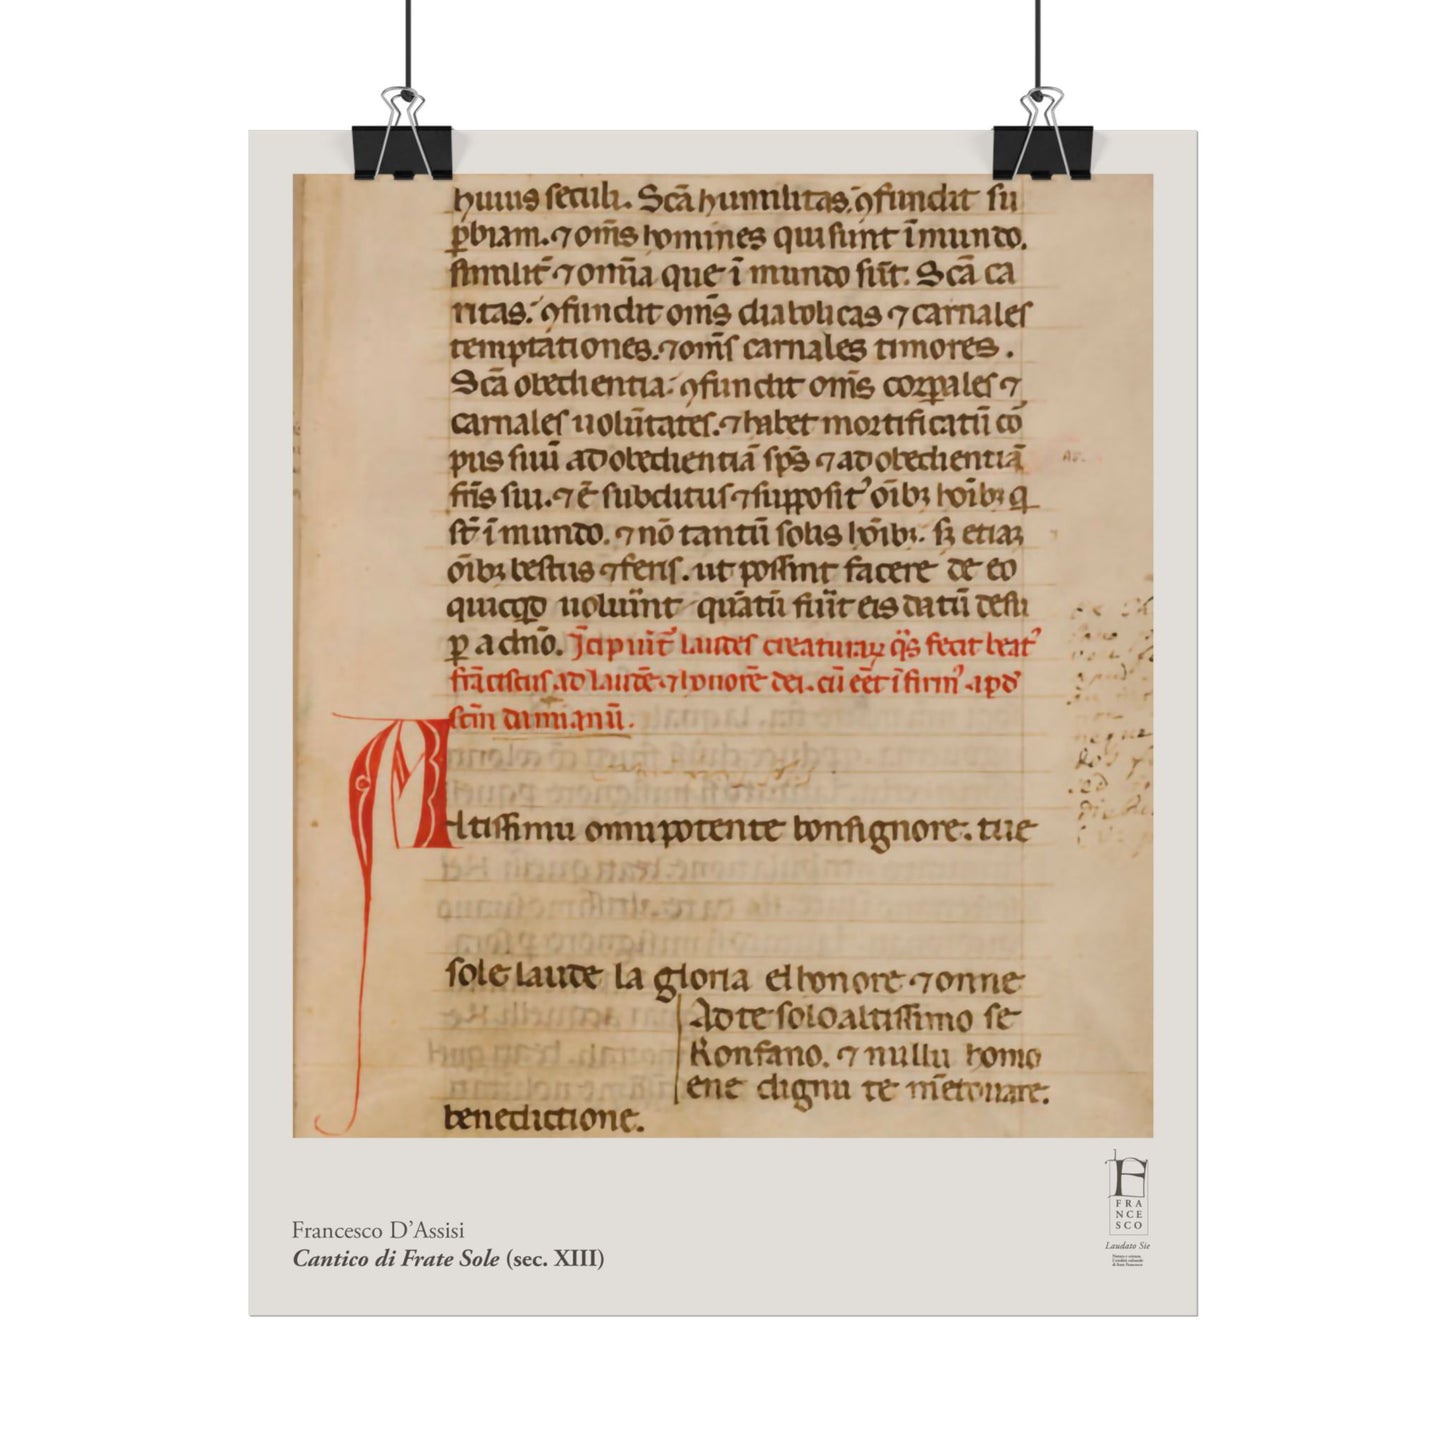 huius seculi. Scā humilitas. ꝯfundit su
ꝑbiam. ⁊ om̄s homines qui sunt ī mundo.
similit̄ ⁊ om̄ia que ī mundo sūt. Scā ca
ritas. ꝯfundit om̄s diabolicas ⁊ carnales
temptationes. ⁊ om̄s carnales timores.
Scā obedientia. ꝯfundit om̄s corꝑales ⁊
carnales uolūtates. ⁊ habet mortificatū co
pus suū ad obedientiā sp̄s ⁊ ad obedientiā
fr̄is sui. ⁊ ē subditus ⁊ supposit᾽ oībꝫ hoībꝫ q̄
st̄ ī mundo. ⁊ nō tantū solis hoībꝫ. sꝫ etiaꝫ
oībꝫ bestiis ⁊ feris. ut possint facere de eo
quicqd uolūint quātū fūit eis datū desu
ꝑ a dn̄o. Īcipiūt laudes creaturaꝝ q̄s fecit beat᾽
frāciscus ad laudē ⁊ honorē dei. cū eēt ī firm᾽ apd
scm̄ damianū.
Altissimu omnipotente bonsignore. tue
sole laude la gloria el honore ⁊ onne
Ad te solo altissimo se
Konfano. ⁊ nullu homo
ene dignu te mētouare.
benedictione.
Francesco D’Assisi
Cantico di Frate Sole (sec. XIII)
F
FRA
NCE
SCO
Laudato Sie
Natura e scienza.
L'eredità culturale
di frate Francesco